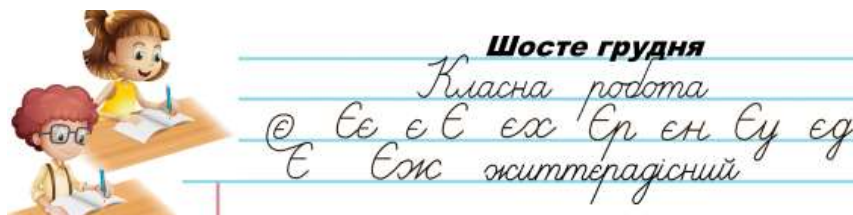 Шосте грудня
Класна робота
Є Єє є Є єх Єр єн Єу єд
Є Єж життєрадісний